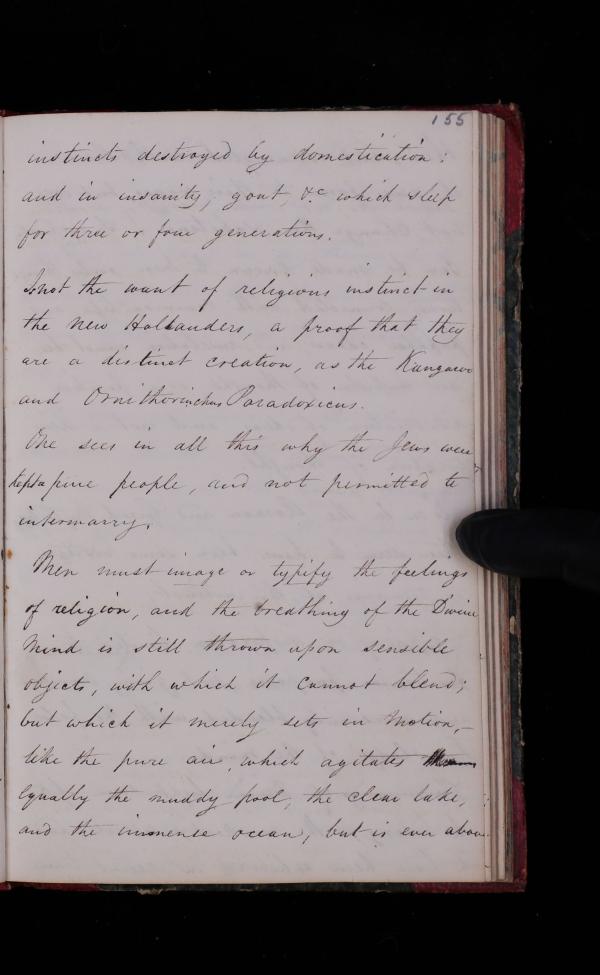 155
instincts destroyed by domestication:
and in insanity, gout, &c which sleep
for three or four generations.
Is not the want of religious instinct in
the New Hollanders, a proof that they
are a distinct creation, as the Kangaroo
and Ornithorinchus Paradoxicus.
One sees in all this why the Jews were
kept a pure people, and not permitted to
intermarry.
Men must image or typify the feelings
of religion, and the breathing of the Divine
Mind is still thrown upon sensible
objects, with which it cannot blend;
but which it merely sets in motion, –
like the pure air, which agitates
equally the muddy pool, the clear lake,
and the immense ocean, but is ever above